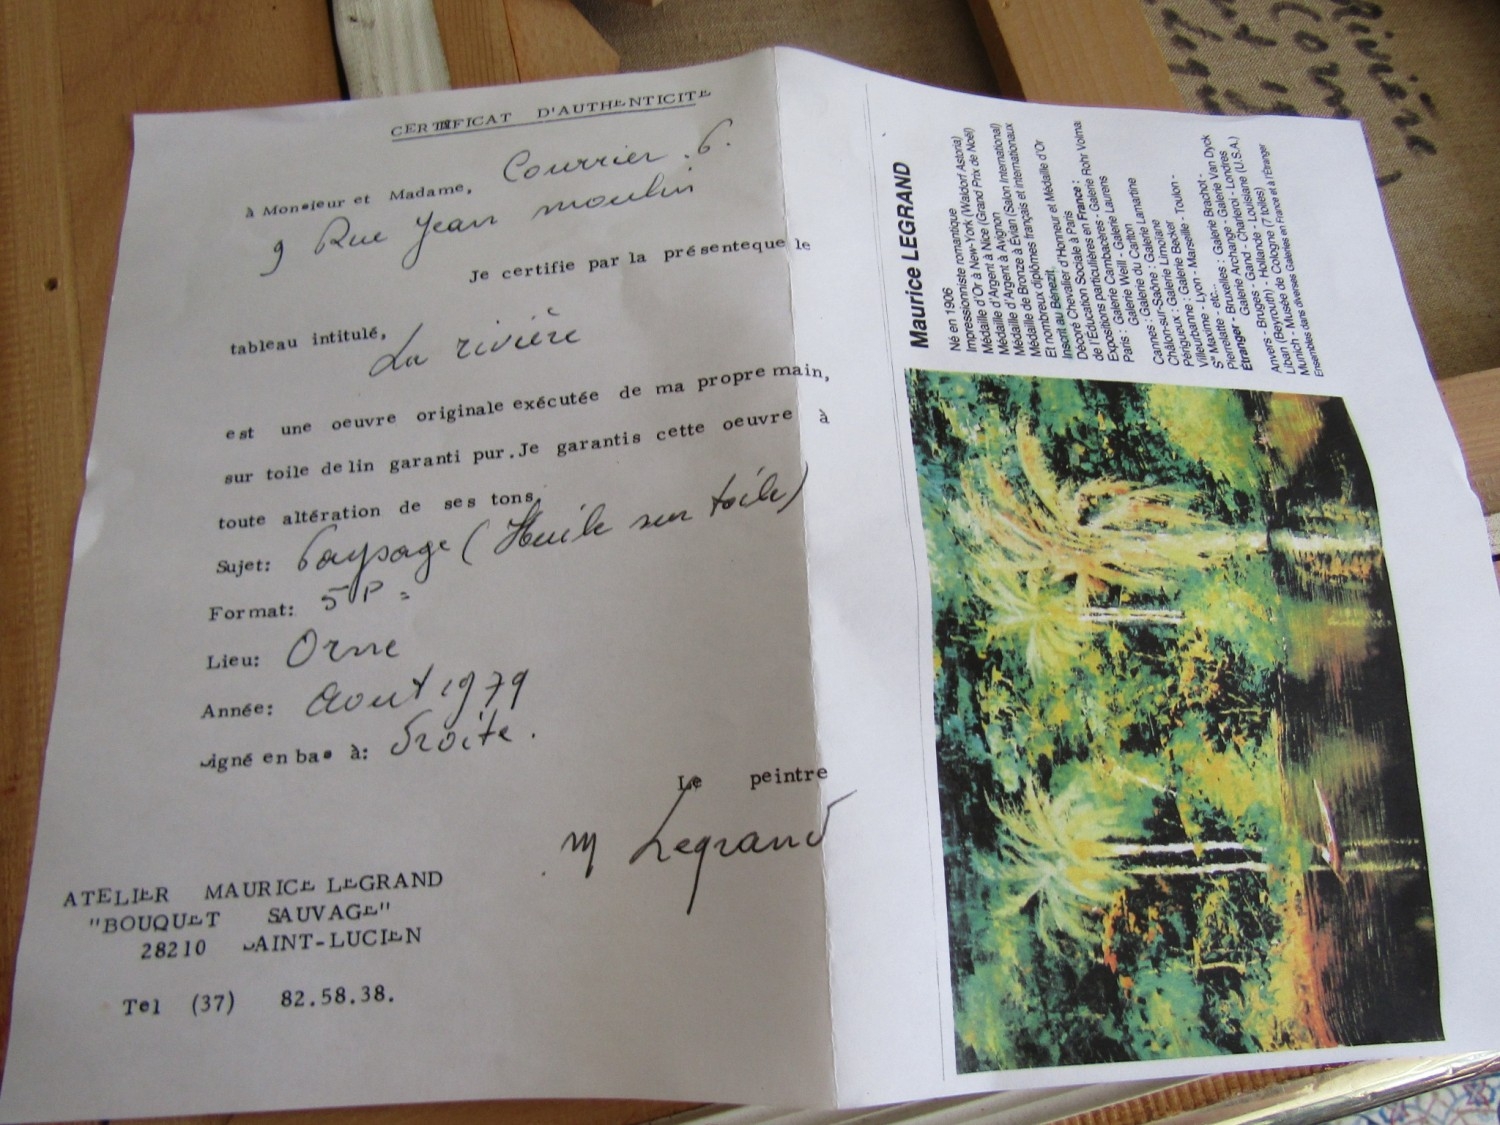 CERTIFICAT D'AUTHENTICITE
à Monsieur et Madame, Courrier . G.
9 Rue Jean moulin
Je certifie par la présenteque le
tableau intitulé,
La rivière
est une oeuvre originale exécutée de ma propre main,
sur toile de lin garanti pur.Je garantis cette oeuvre à
toute altération de ses tons,
Sujet: Paysage (Huile sur toile)
Format: 5 P =
Lieu: Orne
Année: Aout 1979
signé en bas à: Droite .
Le peintre
M Legrand
ATELIER MAURICE LEGRAND
"BOUQUET SAUVAGE"
28210 SAINT-LUCIEN
Tel (37) 82.58.38.
Maurice LEGRAND
Né en 1906
Impressionniste romantique
Médaille d'Or à New-York (Waldorf Astoria)
Médaille d'Argent à Nice (Grand Prix de Noël)
Médaille d'Argent à Avignon
Médaille d'Argent à Évian (Salon International)
Médaille de Bronze à Evian et internationaux
Et nombreux diplômes français et internationaux
Inscrit au Bénézit.
Décoré Chevalier d'Honneur et Médaille d'Or
de l'Éducation Sociale à Paris
Expositions particulières en France :
Paris : Galerie Cambacérès - Galerie Rohr Volmar
Galerie Weill - Galerie Laurens
Galerie du Carlton
Cannes : Galerie Lamartine
Châlon-sur-Saône : Galerie Limoïane
Périgueux : Galerie Becker
Villeurbanne : Lyon - Marseille - Toulon -
Ste Maxime - etc...
Pierrelatte - Bruxelles : Galerie Brachot -
Étranger - Galerie Archange - Galerie Van Dyck
Anvers - Bruges - Gand - Charleroi - Londres
Liban (Beyrouth) - Hollande - Louisiane (U.S.A.)
Munich - Musée de Cologne (7 toiles)
Ensembles dans diverses Galeries en France et à l'Étranger
Rivière